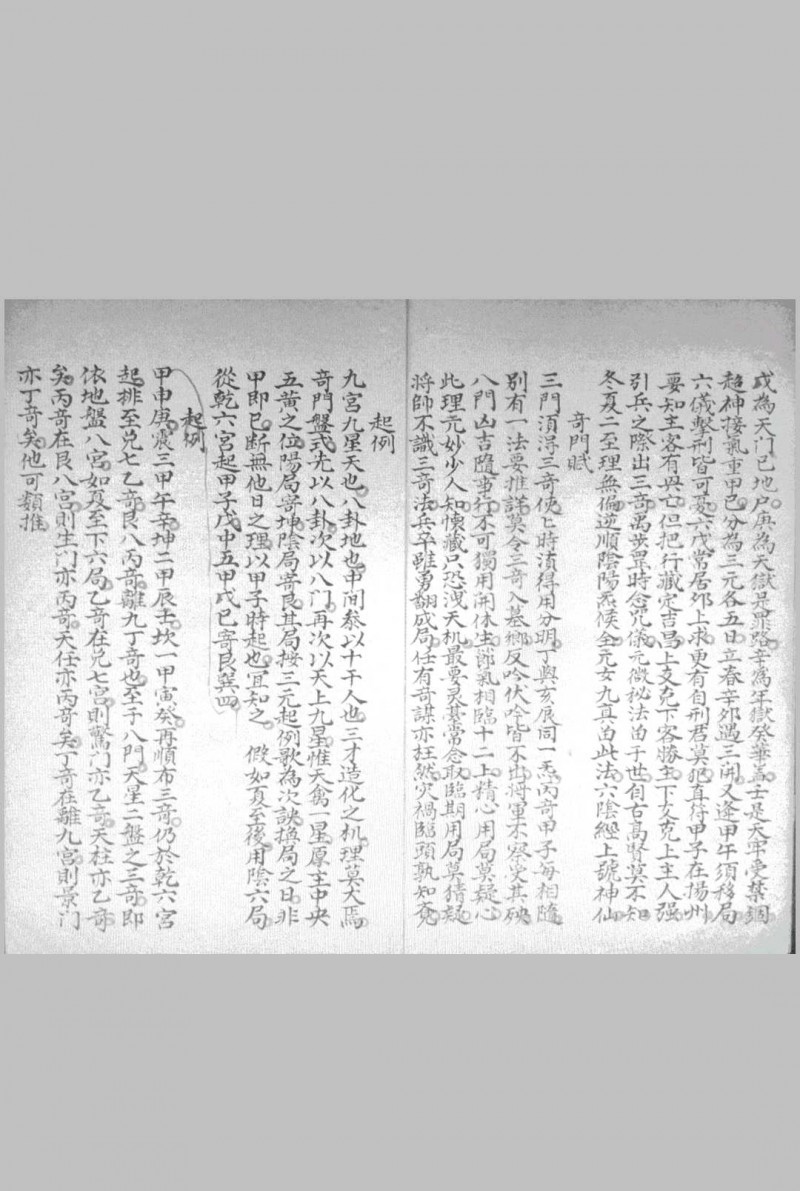 戌為天门巳地户庚為天獄是罪路辛為年獄癸華盖士是天牢受禁錮
超神接氣重甲巳分為三元各五日立春辛夘遇三開又逢甲午須移局
六儀擊刑皆可憂六戊常居夘上求更有自刑君莫犯直符甲子在揚州
要知主客有興亡但把行藏定吉昌上支克下客勝主下支克上主人强
引兵之際出三奇禹步置時念咒儀元微秘法留于世自古高賢莫不知
冬夏二至理無偏逆順陰陽炁候全元女九真留此法六陰經上號神仙
奇門賦
三門須得三奇使七時須得用分明丁與亥辰同一炁丙奇甲子每相隨
别有一法要推詳莫令三奇入墓鄉反吟伏吟皆不出將軍不察受其殃
八門凶吉隨事行不可獨用開休生節氣相臨十二上精心用局莫疑心
此理元妙少人知懷藏只恐洩天机最要灵臺常念取臨期用局莫猜疑
將師不識三奇法兵卒雖勇翻成局任有奇謀亦枉然灾禍臨頭孰知
起例
九宮九星天也八卦地也中间参以十干人也三才造化之机理莫大焉
奇門盤式先以八卦次以八门再次以天上九星惟天禽一星原主中央
五黄之位陽局寄坤陰局寄艮其局按三元起例歌為次訣換局之日非
甲即巳断無他日之理以甲子時起也宜知之 假如夏至後用陰六局
從乾六宮起甲子戊中五甲戌巳寄艮巽四
起例
甲申庚震三甲午辛坤二甲辰壬坎一甲寅癸再順布三奇仍於乾六宮
起排至兑七乙奇艮八丙奇離九丁奇也至于八門天星二盤之三奇即
依地盤八宮如夏至下六局乙奇在兑七宮則驚门亦乙奇天柱亦乙奇
矣丙奇在艮八宮則生门亦丙奇天任亦丙奇矣丁奇在離九宮則景门
亦丁奇矣他可類推